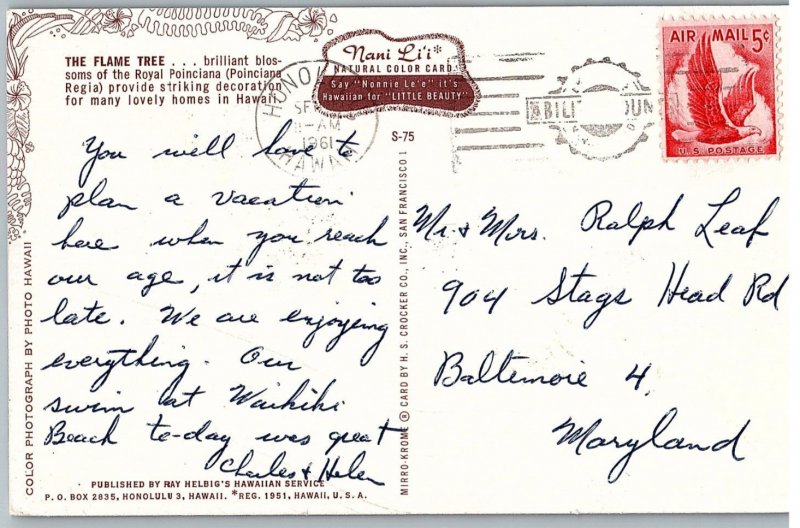 THE FLAME TREE . . . brilliant blos-
soms of the Royal Poinciana (Poinciana
Regia) provide striking decoration
for many lovely homes in Hawaii.
Nani Li'i*
NATURAL COLOR CARD
Say "Nonnie Le'e" it's
Hawaiian for "LITTLE BEAUTY"
S-75
HONOLU
SE
11-AM
1961
HAWAII
ABILI OUN
AIR MAIL 5¢
U.S. POSTAGE
You will have to
plan a vacation
here when you reach
our age, it is not too
late. We are enjoying
everything. Our
swim at Waikiki
Beach to-day was great
Charles & Helen
Mr & Mrs. Ralph Leaf
904 Stags Head Rd
Baltimore 4,
Maryland
COLOR PHOTOGRAPH BY PHOTO HAWAII
MIRRO-KROME ® CARD BY H. S. CROCKER CO., INC., SAN FRANCISCO 1
PUBLISHED BY RAY HELBIG'S HAWAIIAN SERVICE
P. O. BOX 2835, HONOLULU 3, HAWAII. *REG. 1951, HAWAII, U. S. A.